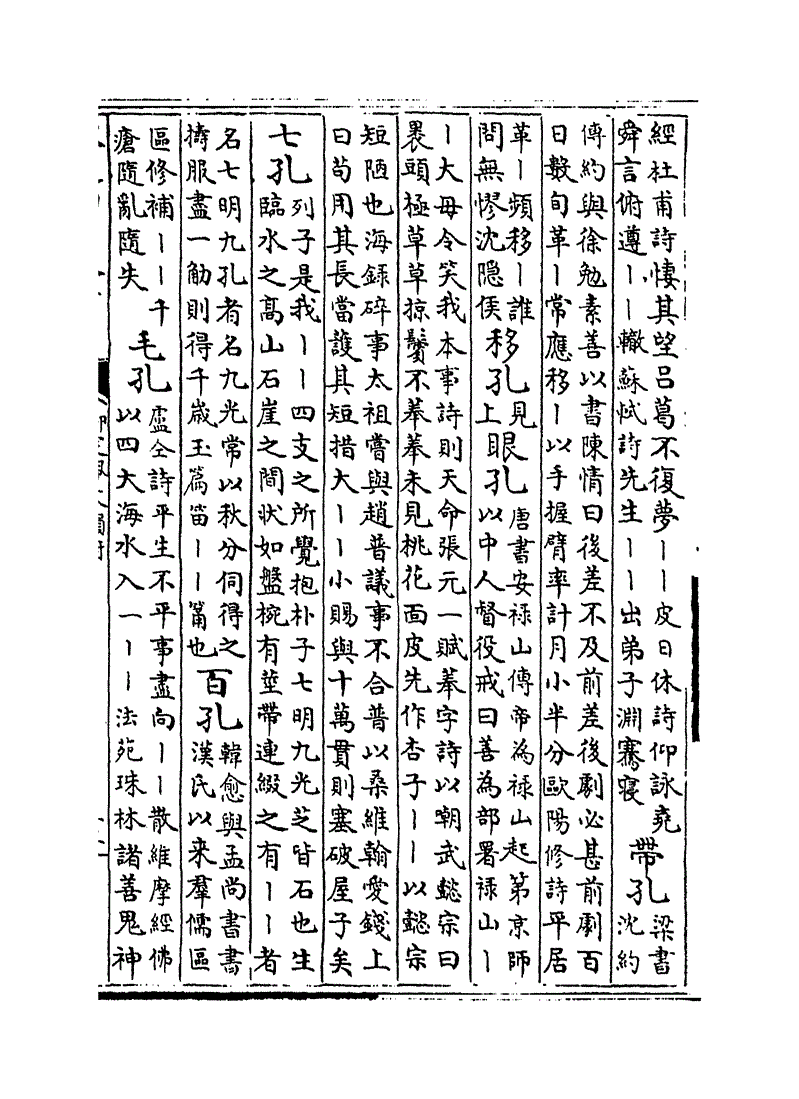 經杜甫詩悽其望呂葛不復夢｜｜皮日休詩仰詠堯
舜言俯遵｜｜轍蘇軾詩先生｜｜出弟子淵騫寢
帶孔
梁書
沈約
傳約與徐勉素善以書陳情曰後差不及前差後劇必甚前劇百
日數旬革｜常應移｜以手握臂率計月小半分歐陽修詩平居
革｜頻移｜誰
問無憀沈隱侯
移孔
見
上
眼孔
唐書安祿山傳帝為祿山起第京師
以中人督役戒曰善為部署祿山｜
｜大毋令笑我本事詩則天命張元一賦菶字詩以嘲武懿宗曰
褁頭極草草掠鬢不菶菶未見桃花面皮先作杏子｜｜以懿宗
短陋也海錄碎事太祖嘗與趙普議事不合普以桑維翰愛錢上
曰苟用其長當護其短措大｜｜小賜與十萬貫則塞破屋子矣
七孔
列子是我｜｜四支之所覺抱朴子七明九光芝皆石也生
臨水之高山石崖之間狀如盤椀有莖蒂連綴之有｜｜者
名七明九孔者名九光常以秋分伺得之
擣服盡一觔則得千嵗玉篇笛｜｜筩也
百孔
韓愈與孟尚書書
漢氏以来羣儒區
區修補｜｜千
瘡隨亂隨失
毛孔
盧仝詩平生不平事盡向｜｜散維摩經佛
以四大海水入一｜｜法苑珠林諸善鬼神